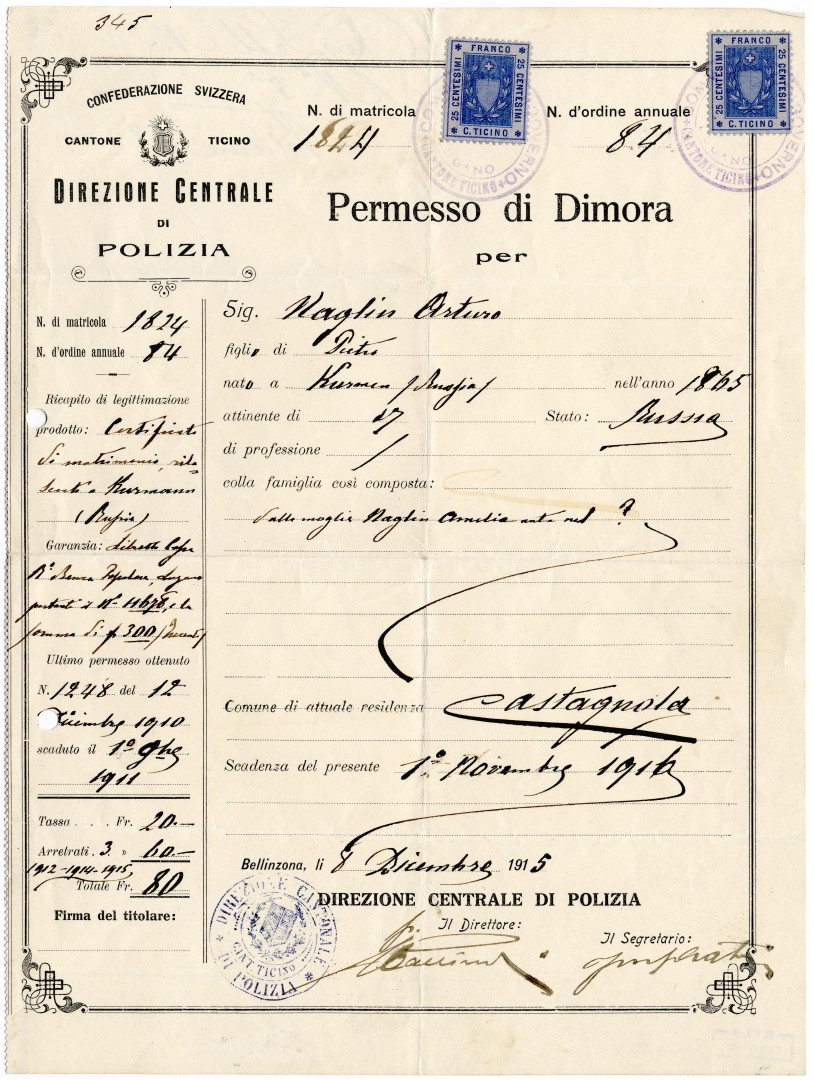 345
CONFEDERAZIONE SVIZZERA
CANTONE TICINO
DIREZIONE CENTRALE
DI
POLIZIA
N. di matricola 1824
FRANCO
25 CENTESIMI 25 CENTESIMI
C. TICINO
N. d'ordine annuale 84
FRANCO
25 CENTESIMI 25 CENTESIMI
C. TICINO
GOVERNO
CANTONE TICINO
GOVERNO
CANTONE TICINO
Permesso di Dimora
per
N. di matricola 1824
N. d'ordine annuale 84
Ricapito di legittimazione
prodotto: Certificato
di matrimonio, rila-
sciato a Kurmann
(Russia)
Garanzia: Libretto Cassa
Rº Banca Popolare, Lugano
portante il Nº 11678, e la
somma di fr 300
Ultimo permesso ottenuto
N. 1248 del 12
Dicembre 1910
scaduto il 1º 9bre
1911
Tassa . . . Fr. 20.—
Arretrati . 3. » 60.—
1912-1914-1915
Totale Fr. 80
Firma del titolare:
Sig. Naglin Arturo
figlio di Pietro
nato a Kurmen (Russia) nell'anno 1865
attinente di Stato: Russia
di professione /
colla famiglia così composta:
dalla moglie Naglin Amelia nata nel ?
Comune di attuale residenza Castagnola
Scadenza del presente 1º Novembre 1916
Bellinzona, li 8 Dicembre 1915
DIREZIONE CENTRALE DI POLIZIA
Il Direttore:
Il Segretario:
DIREZIONE CANTONALE
DI POLIZIA
CANT. TICINO